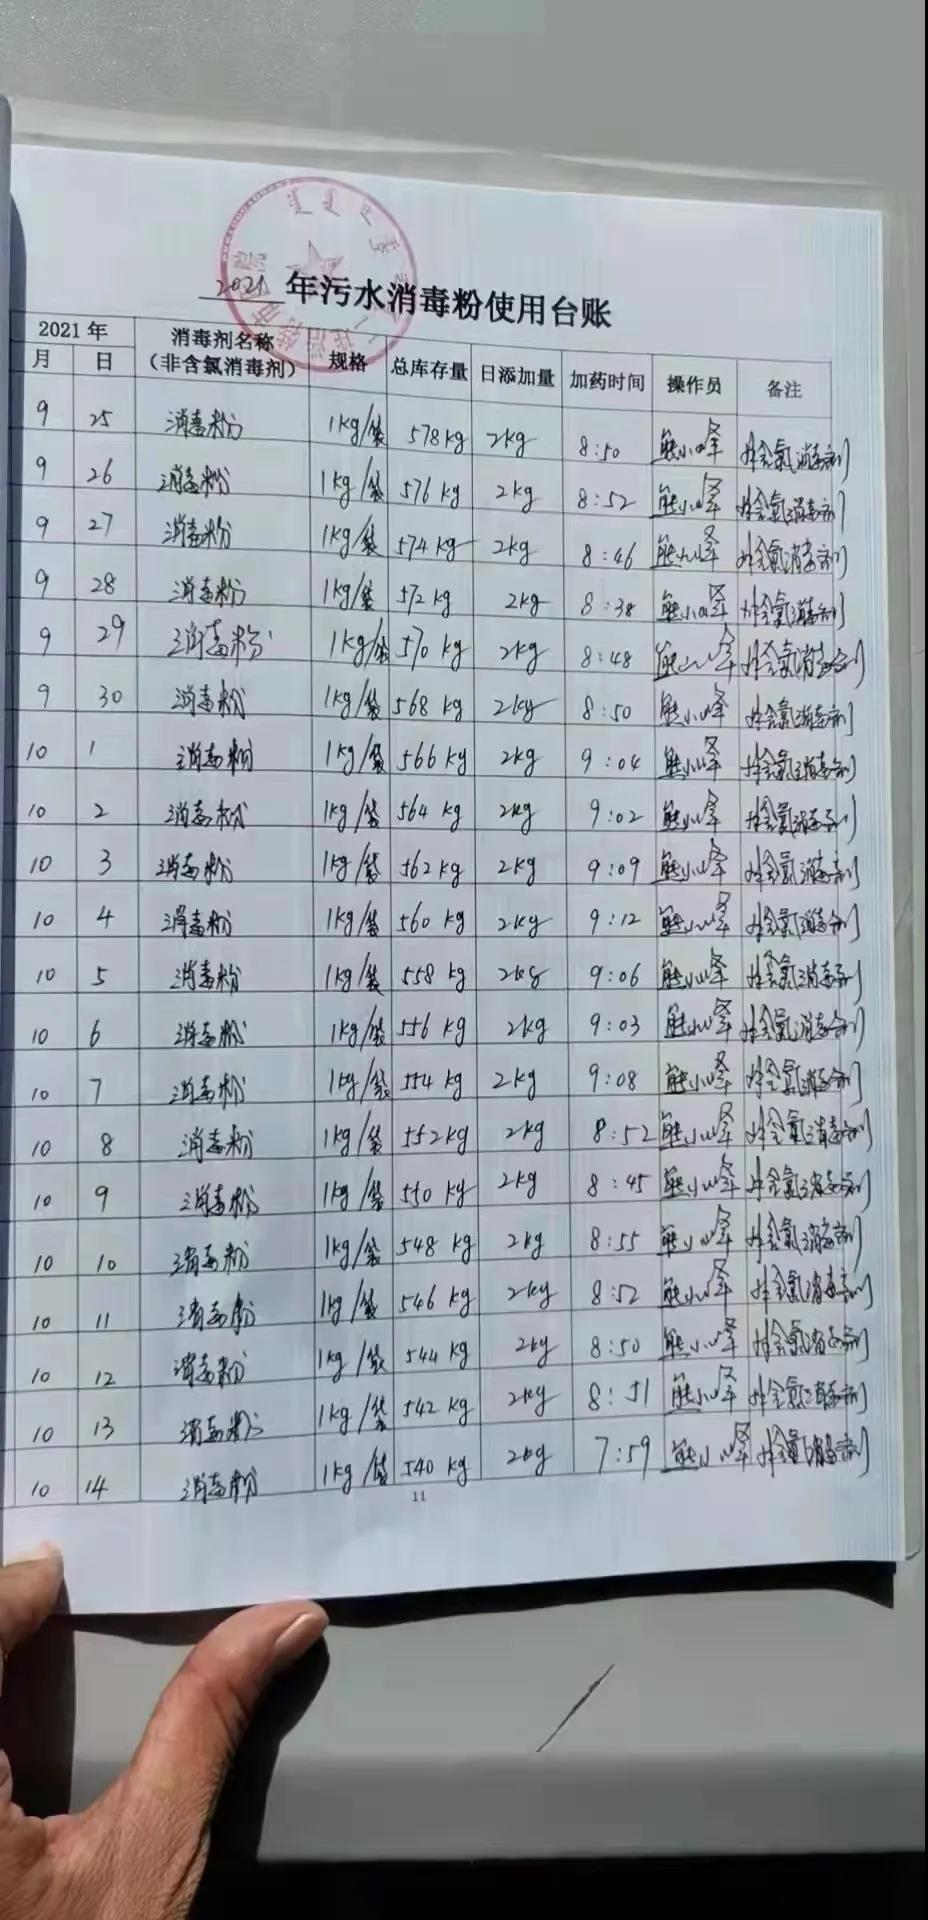 2021 年污水消毒粉使用台账
2021 年 消毒剂名称（非含氯消毒剂） 规格 总库存量 日添加量 加药时间 操作员 备注
月 日
9 25 消毒粉 1kg/袋 578kg 2kg 8:50 熊小峰 非含氯消毒剂
9 26 消毒粉 1kg/袋 576kg 2kg 8:52 熊小峰 非含氯消毒剂
9 27 消毒粉 1kg/袋 574kg 2kg 8:46 熊小峰 非含氯消毒剂
9 28 消毒粉 1kg/袋 572kg 2kg 8:38 熊小峰 非含氯消毒剂
9 29 消毒粉 1kg/袋 570kg 2kg 8:48 熊小峰 非含氯消毒剂
9 30 消毒粉 1kg/袋 568kg 2kg 8:50 熊小峰 非含氯消毒剂
10 1 消毒粉 1kg/袋 566kg 2kg 9:04 熊小峰 非含氯消毒剂
10 2 消毒粉 1kg/袋 564kg 2kg 9:02 熊小峰 非含氯消毒剂
10 3 消毒粉 1kg/袋 562kg 2kg 9:09 熊小峰 非含氯消毒剂
10 4 消毒粉 1kg/袋 560kg 2kg 9:12 熊小峰 非含氯消毒剂
10 5 消毒粉 1kg/袋 558kg 2kg 9:06 熊小峰 非含氯消毒剂
10 6 消毒粉 1kg/袋 556kg 2kg 9:03 熊小峰 非含氯消毒剂
10 7 消毒粉 1kg/袋 554kg 2kg 9:08 熊小峰 非含氯消毒剂
10 8 消毒粉 1kg/袋 552kg 2kg 8:52 熊小峰 非含氯消毒剂
10 9 消毒粉 1kg/袋 550kg 2kg 8:45 熊小峰 非含氯消毒剂
10 10 消毒粉 1kg/袋 548kg 2kg 8:55 熊小峰 非含氯消毒剂
10 11 消毒粉 1kg/袋 546kg 2kg 8:52 熊小峰 非含氯消毒剂
10 12 消毒粉 1kg/袋 544kg 2kg 8:50 熊小峰 非含氯消毒剂
10 13 消毒粉 1kg/袋 542kg 2kg 8:51 熊小峰 非含氯消毒剂
10 14 消毒粉 1kg/袋 540kg 2kg 7:59 熊小峰 非含氯消毒剂
11